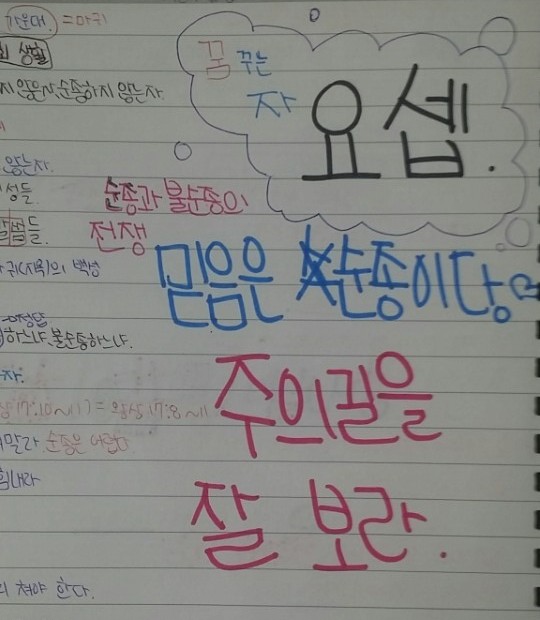 가운데. = 마귀
생활
꿈 꾸는
자
요셉.
지 않은 자, 순종하지 않는 자.
않는 자.
성들.
순종과 불순종의
전쟁
들.
의 백성
믿음은 순종이당♡
하느냐, 불순종하느냐.
자.
17:10~11) = 왕상 17:8~11
말라. 순종은 어렵다
힘내라
주의 길을
잘 보라.
쳐야 한다.